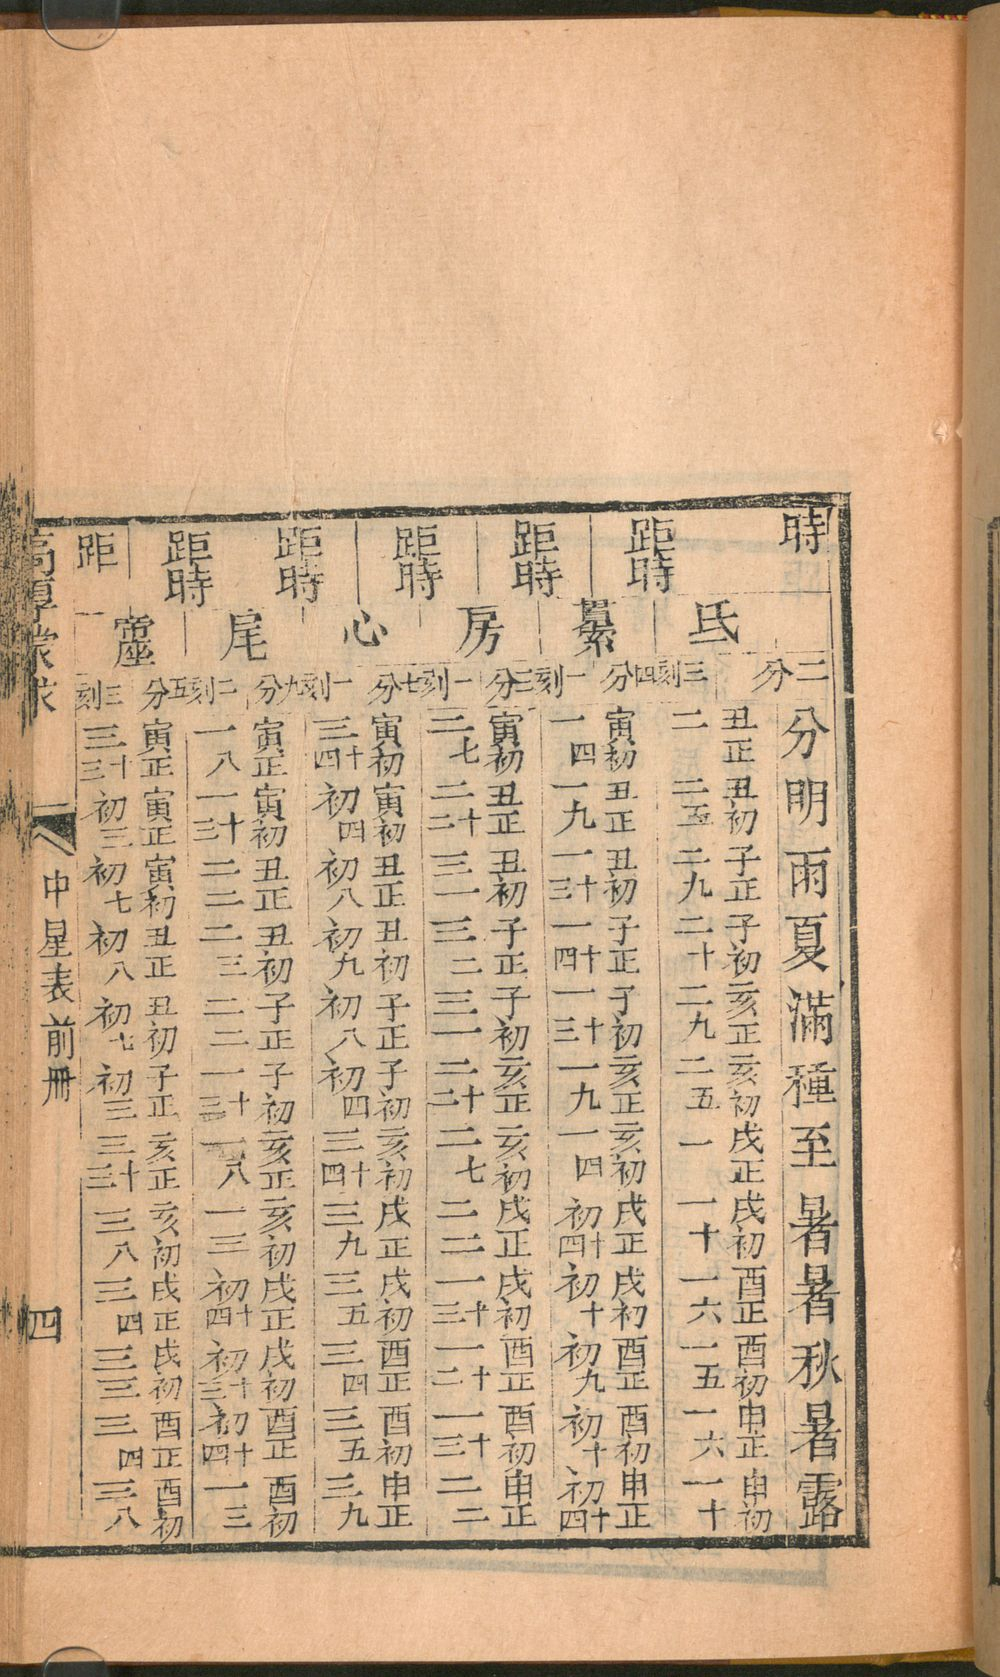 時 二 分 明 雨 夏 滿 種 至 暑 暑 秋 暑 露
氐 分 丑正 丑初 子正 子初 亥正 亥初 戌正 戌初 酉正 酉初 申正 申初
距時 三刻四 二 二五 二九 二十 二九 二五 一 一十 一六 一五 一六 一十
貫索 分 寅初 丑正 丑初 子正 子初 亥正 亥初 戌正 戌初 酉正 酉初 申正
距時 一刻三 一四 一九 一十三 一十四 一十三 一九 一四 初十四 初十 初九 初十 初十四
房 分 寅初 丑正 丑初 子正 子初 亥正 亥初 戌正 戌初 酉正 酉初 申正
距時 一刻七 二七 二十二 三一 三二 三一 二十二 二七 二二 一十三 一十二 一十三 二二
心 分 寅初 寅初 丑正 丑初 子正 子初 亥初 戌正 戌初 酉正 酉初 申正
距時 一刻九 三十四 初四 初八 初九 初八 初四 三十四 三九 三五 三四 三五 三九
尾 分 寅正 寅初 丑正 丑初 子正 子初 亥正 亥初 戌正 戌初 酉正 酉初
距時 二刻五 一八 一十三 二二 二三 二二 一十三 一八 一三 初十四 初十三 初十四 一三
帝座 分 寅正 寅正 寅初 丑正 丑初 子正 亥正 亥初 戌正 戌初 酉正 酉初
距 三刻 三十三 初三 初七 初八 初七 初三 三十三 三八 三四 三三 三四 三八
高厚蒙求 中星表前册 四